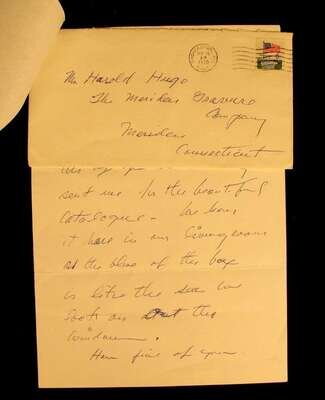 Mr Harold Hugo
The Meriden Gravure
Company
Meriden
Connecticut
sent me in the beautiful
catalogue - We have
it here in our livingroom
as the blue of the box
is like the sea we
look on out the
windows.
How fine of you